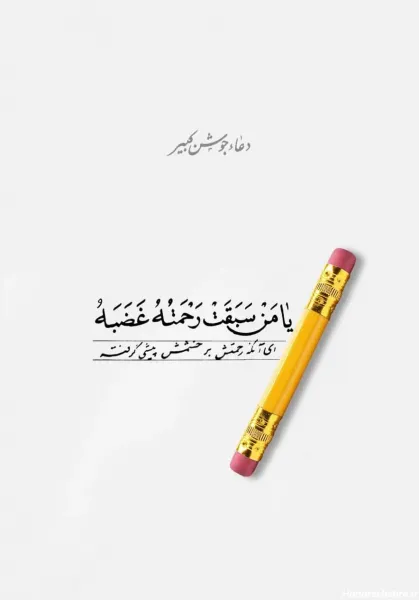 دعاء جوشن کبیر
یٰا مَنْ سَبَقَتْ رَحْمَتُهُ غَضَبَهُ
ای آنکه رحمتش بر خشمش پیشی گرفته